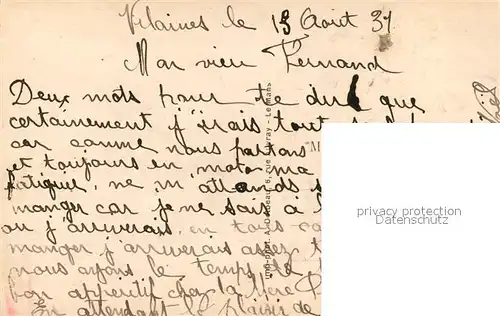 Vilaines le 15 Août 37
Mon vieux Fernand
Deux mots pour te dire que
certainement j'irais tout
car comme nous partons
et toujours en moto ma
fatigue, ne m'attends
manger car je ne sais à
où j'arriverais, en tous cas
manger j'arriverais assez
nous ayons le temps de
bon appéritif chez la Mère
En attendant le plaisir de
privacy protection
Datenschutz
Le Mans